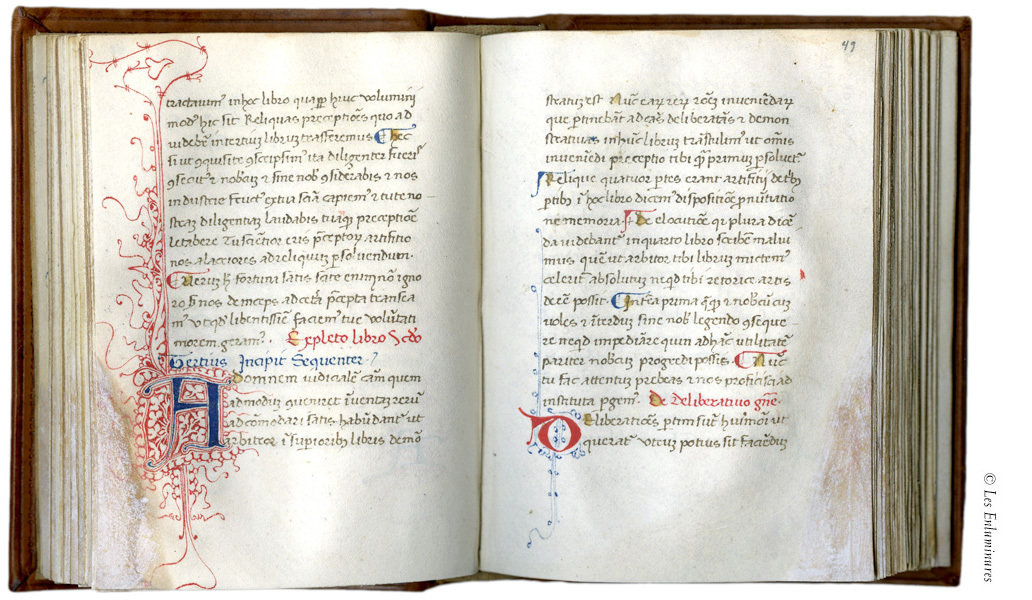 tractauim9 in hoc libro quapp huic volumini
mod9 hic sit Reliquas preceptiōes quo ad
videbīt in tertiuz libruz trāsferemus Hec
si ut ꝯquisite ꝯscripsim9 ita diligenter fuer̄
ꝯsecut9 ⁊ nobcuz ⁊ sine nob̄ ꝯsiderabis ⁊ nos
industrie fruct9 ex tua sciā capiem9 ⁊ tute no
straz diligentiaz laudabis tuaqȝ preceptiōe
letabere Tu sciētior eris p̄ceptoꝝ artifitio
nos alacriores ad reliquuz ꝑsoluendum.
Veruz h̄ fortuna satis scite enim nō igno
ro & nos deinceps ad cetā p̄cepta transea
m9 Vt qd̄ libentissie faciem9 tue volūtati
morem geram9. Expleto libro Scd̄o
Tertius Incipit Sequenter
Ad omnem iudicialē cām quem
ad moduz queniret īuentaz rerū
ad cōmodari satis habūdant̄ ut
arbitror ī superiorib9 libris demō
49
stratuz est Nūc eaꝝ reꝝ rōez inueniēdaꝝ
que ptinebāt ad cās deliberatiās ⁊ demon
stratiuas in hūc libruz trāstulim9 ut omīs
inueniēdi preceptio tibi qȝ primuz ꝑsoluet̄
Relique quatuor ꝑtes erant artifitii de t̄b9
ptib9 ī hoc libro dicem9 dispositiōe ꝓnūtatio
ne memoria. De elocutiōe qȝ plura dicē
da uidebant̄ in quarto libro scribe malui
mus quē ut arbitror tibi libruz mictem9
celerit̄ absolutuz neqd tibi retorice artis
deēe possit. Intea prima q̄qȝ ⁊ nobcuz cuz
voles ⁊ īterduz sine nob̄ legendo ꝯseque
re neqd impediāre quin ad hāc utilitatē
pariter nobcuz progredi possis. Nūc
tu fac attentuz prebeas ⁊ nos proficisci ad
instituta ꝑgem9. De deliberativo gn̄e.
Deliberatiōes ptim sūt hui9mōi ut
querat̄ vtruz potius sit faciēduz
© Les Enluminures